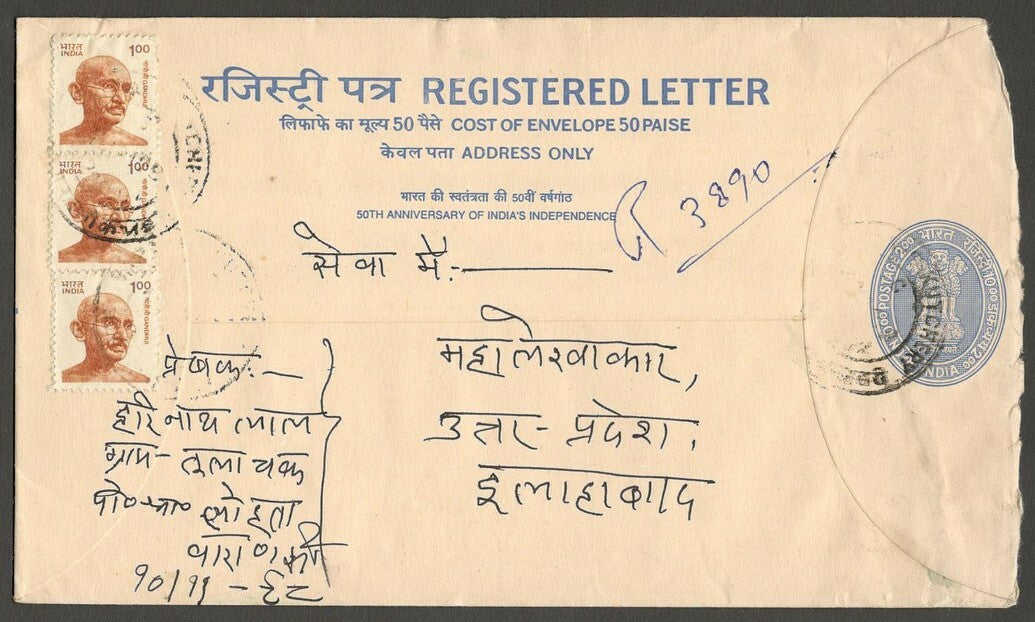 भारत
INDIA
1.00
गांधी GANDHI
भारत
INDIA
1.00
भारत
INDIA
1.00
गांधी GANDHI
रजिस्ट्री पत्र REGISTERED LETTER
लिफाफे का मूल्य 50 पैसे COST OF ENVELOPE 50 PAISE
केवल पता ADDRESS ONLY
भारत की स्वतंत्रता की 50वीं वर्षगांठ
50TH ANNIVERSARY OF INDIA'S INDEPENDENCE
R 3890
सेवा में:-
महालेखाकार,
उत्तर-प्रदेश,
इलाहाबाद
प्रेषक:-
हरि नाथ लाल
ग्राम- तुला चक
पो०आ० लोहता
वाराणसी
१०/११-९८
POSTAGE 2.00 भारत
INDIA
KUTCHERY